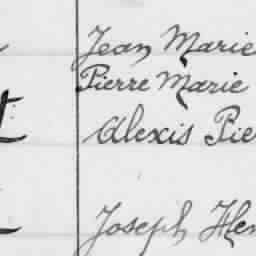 Jean Marie
Pierre Marie
Alexis Pie
Joseph Hen